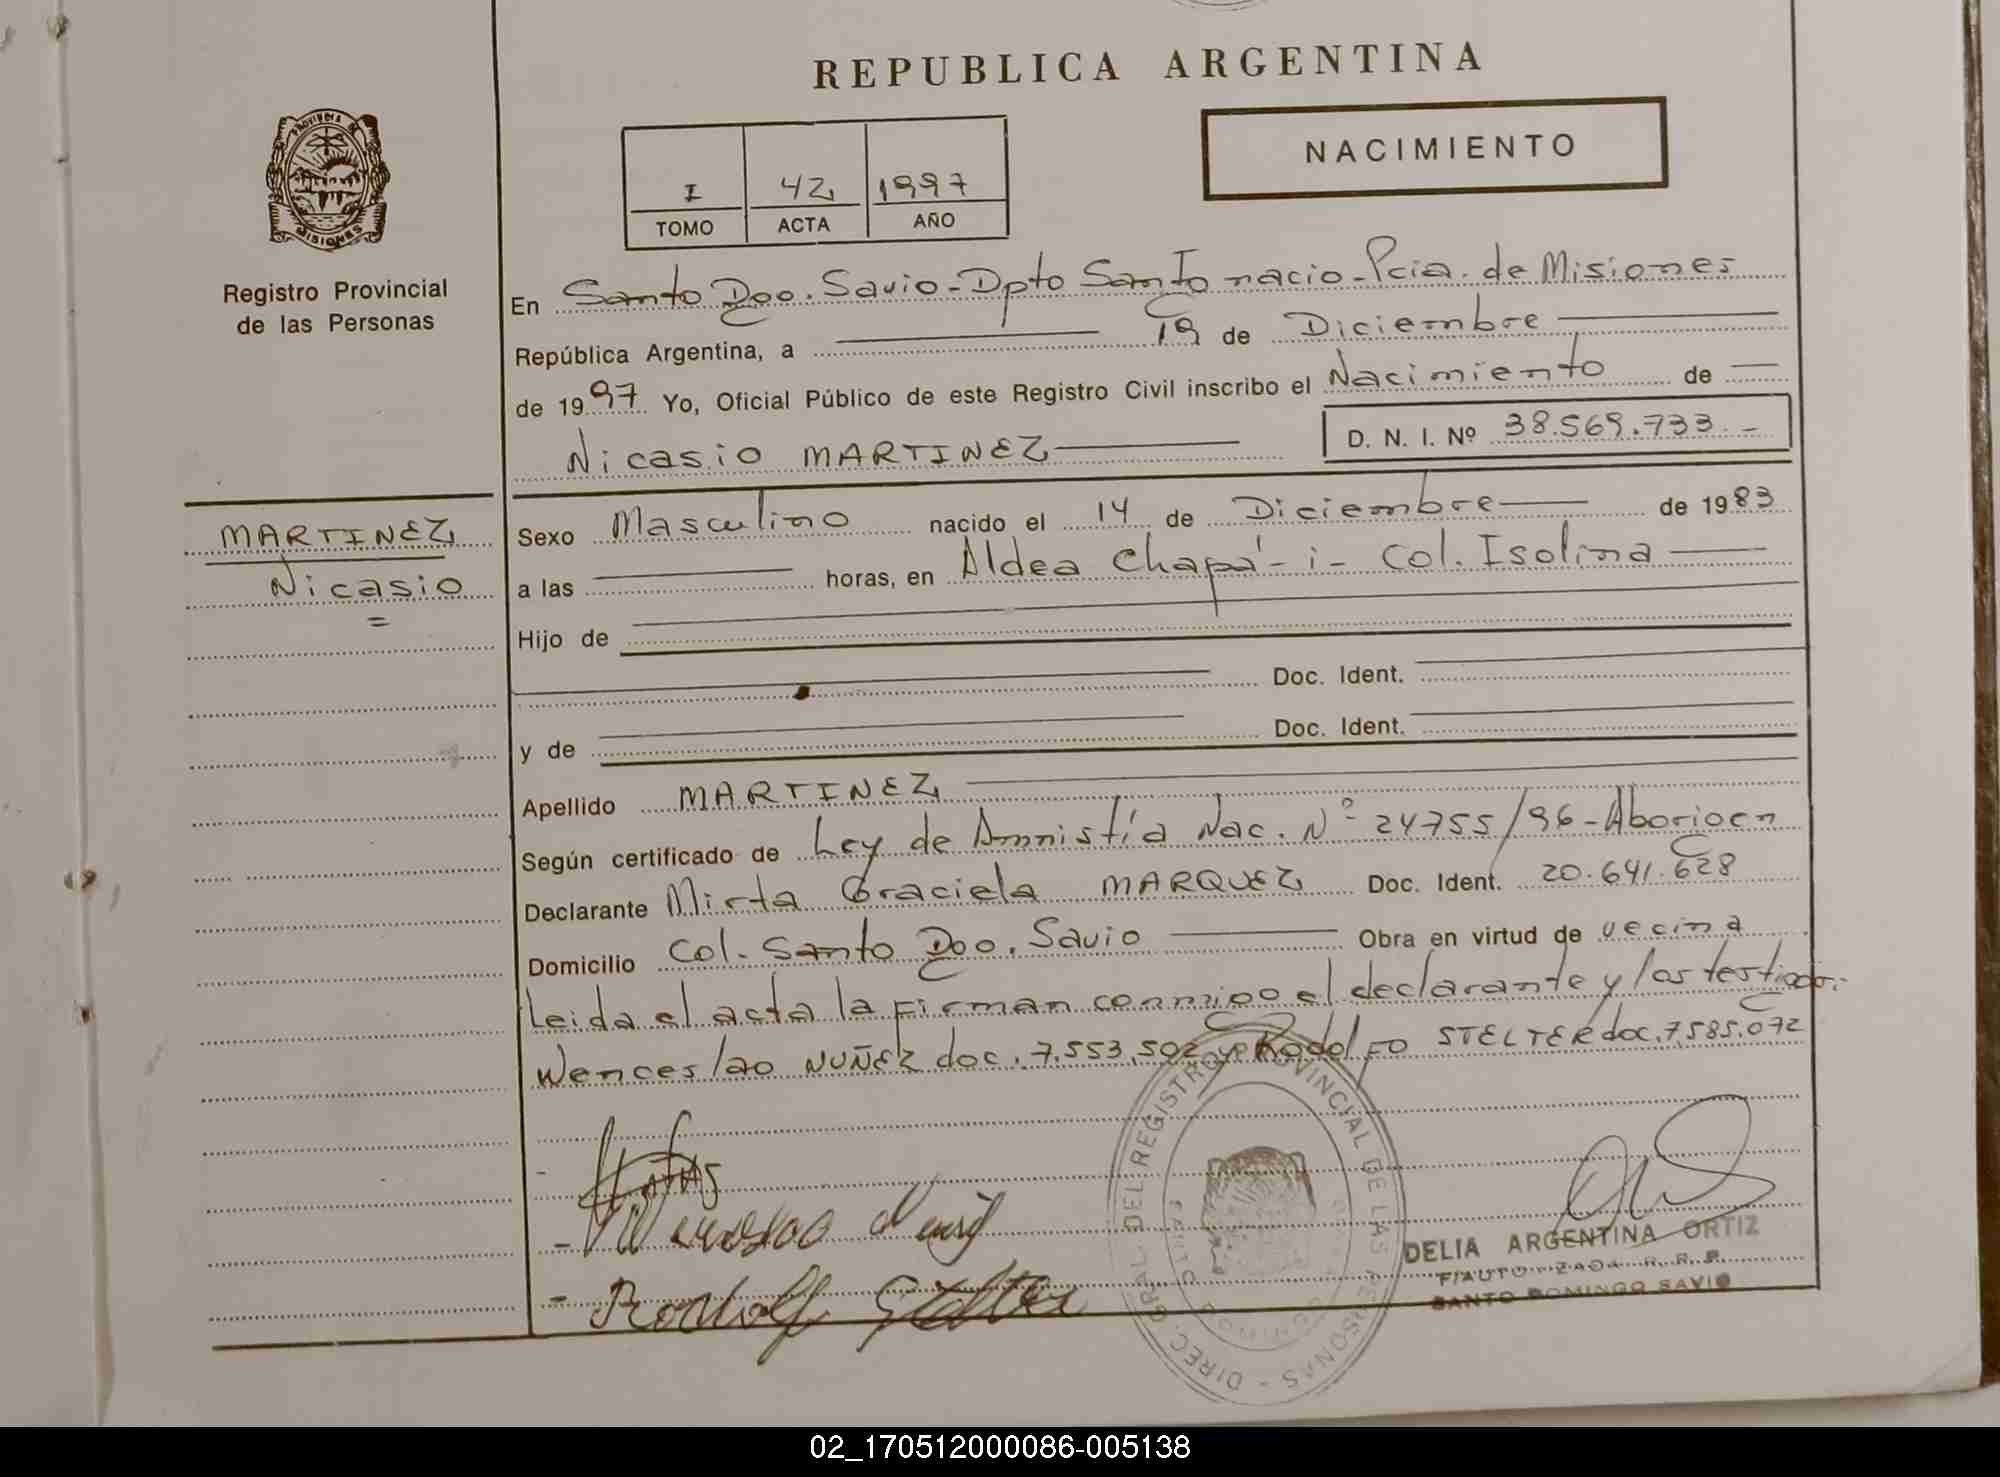 REPUBLICA ARGENTINA
NACIMIENTO
PROVINCIA DE
MISIONES
Registro Provincial
de las Personas
I 42 1997
TOMO ACTA AÑO
En Santo Dgo. Savio - Dpto San Ignacio - Pcia. de Misiones
República Argentina, a 19 de Diciembre
de 1997 Yo, Oficial Público de este Registro Civil inscribo el Nacimiento de
Nicasio MARTINEZ D. N. I. Nº 38.569.733.-
MARTINEZ
Nicasio
Sexo Masculino nacido el 14 de Diciembre de 1983
a las horas, en Aldea Chapá - i - Col. Isolina
Hijo de
Doc. Ident.
y de Doc. Ident.
Apellido MARTINEZ
Según certificado de Ley de Amnistía Nac. Nº 24755/96 - Aborigen
Declarante Mirta Graciela MARQUEZ Doc. Ident. 20.641.628
Domicilio Col. Santo Dgo. Savio Obra en virtud de vecina
Leida el acta la firman conmigo el declarante y los testigos:
Wenceslao NUÑEZ doc. 7.553.502 y Rodolfo STELTER doc. 7.585.072
Rodolf Stelter
DIREC. GRAL. DEL REGISTRO PROVINCIAL DE LAS PERSONAS -
DELIA ARGENTINA ORTIZ
F/AUTORIZADA R. R. P.
SANTO DOMINGO SAVIO
02_170512000086-005138